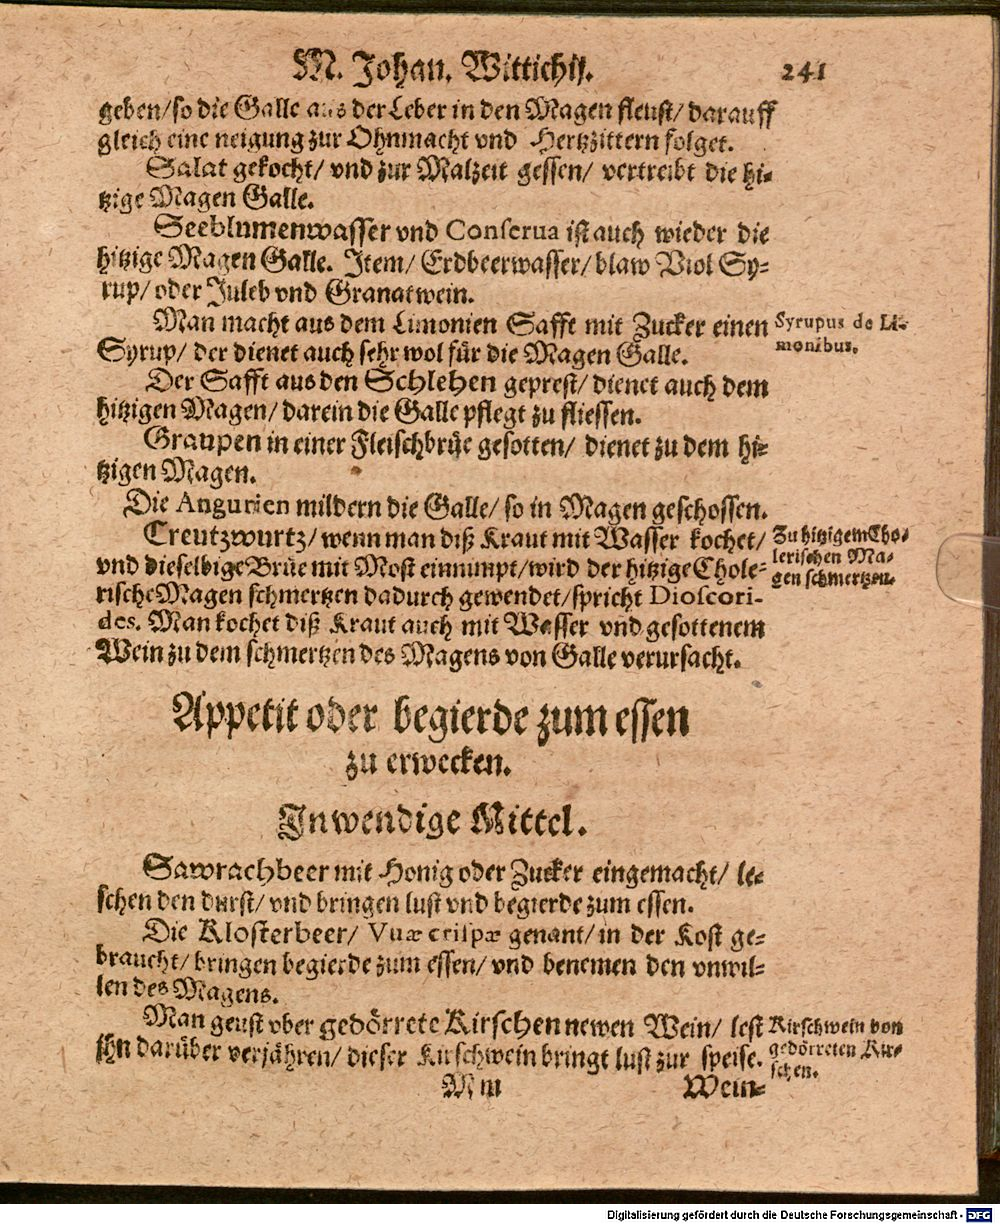 M. Johan. Wittichij. 241
geben/ so die Galle aus der Leber in den Magen fleust/ darauff
gleich eine neigung zur Ohnmacht vnd Hertzzittern folget.
Salat gekocht/ vnd zur Malzeit gessen/ vertreibt die hi-
tzige Magen Galle.
Seeblumenwasser vnd Conserua ist auch wieder die
hitzige Magen Galle. Item/ Erdbeerwasser/ blaw Viol Sy-
rup/ oder Juleb vnd Granatwein.
Man macht aus dem Limonien Safft mit Zucker einen
Syrup/ der dienet auch sehr wol für die Magen Galle.
Syrupus de Li-
monibus.
Der Safft aus den Schlehen geprest/ dienet auch dem
hitzigen Magen/ darein die Galle pflegt zu fliessen.
Graupen in einer Fleischbrüe gesotten/ dienet zu dem hi-
tzigen Magen.
Die Angurien mildern die Galle/ so in Magen geschossen.
Creutzwurtz/ wenn man diß Kraut mit Wasser kochet/
vnd dieselbige Brüe mit Most einnimpt/ wird der hitzige Chole-
rische Magen schmertzen dadurch gewendet/ spricht Dioscori-
des. Man kochet diß Kraut auch mit Wasser vnd gesottenem
Wein zu dem schmertzen des Magens von Galle verursacht.
Zu hitzigem Cho-
lerischen Ma-
gen schmertzen.
Appetit oder begierde zum essen
zu erwecken.
Inwendige Mittel.
Sawrachbeer mit Honig oder Zucker eingemacht/ le-
schen den durst/ vnd bringen lust vnd begierde zum essen.
Die Klosterbeer/ Vuæ crispæ genant/ in der Kost ge-
braucht/ bringen begierde zum essen/ vnd benemen den vnwil-
len des Magens.
Man geust vber gedörrete Kirschen newen Wein/ lest
ihn darüber verjähren/ dieser Kirschwein bringt lust zur speise.
Kirschwein von
gedörreten Kir-
schen.
M m Wein-
Digitalisierung gefördert durch die Deutsche Forschungsgemeinschaft - DFG